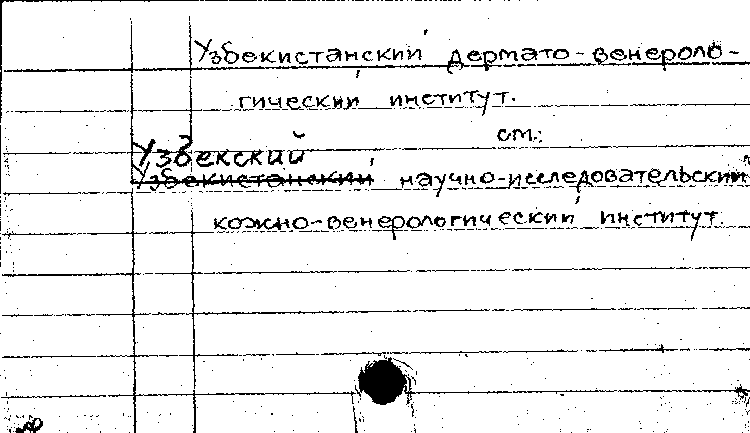 Узбекистанский дермато-венероло-
гический институт.
см.:
Узбекский
Узбекистанский научно-исследовательский
кожно-венерологический институт.